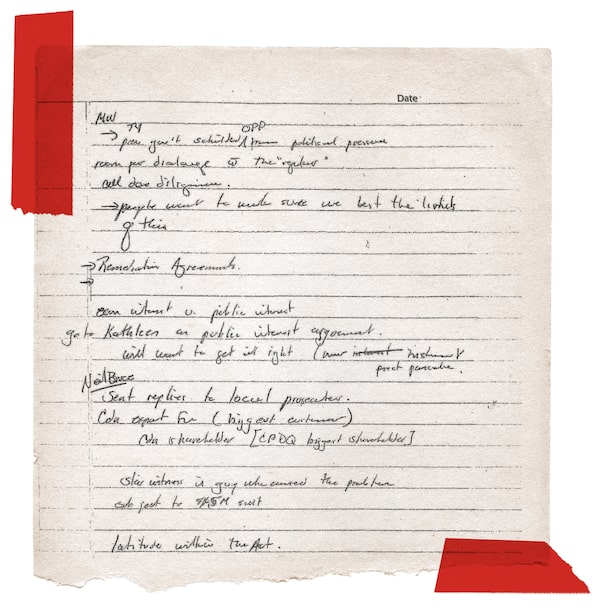 Date
MW
→ gov't shielded from political pressure
DPP
room for dialogue the "regulars"
call done diligence.
→ people want to make sure we test the limits
of this
→ Remediation Agreements.
→
own interest v. public interest
go to Kathleen on public interest argument.
will want to get it right (new interest instrument
Neil Bruce
Sent replies to local prosecutor.
Cda export Fin (biggest customer)
Cda shareholder [CPDQ biggest shareholder]
star witness is guy who caused the problem
subject to suit
latitude within the Act.